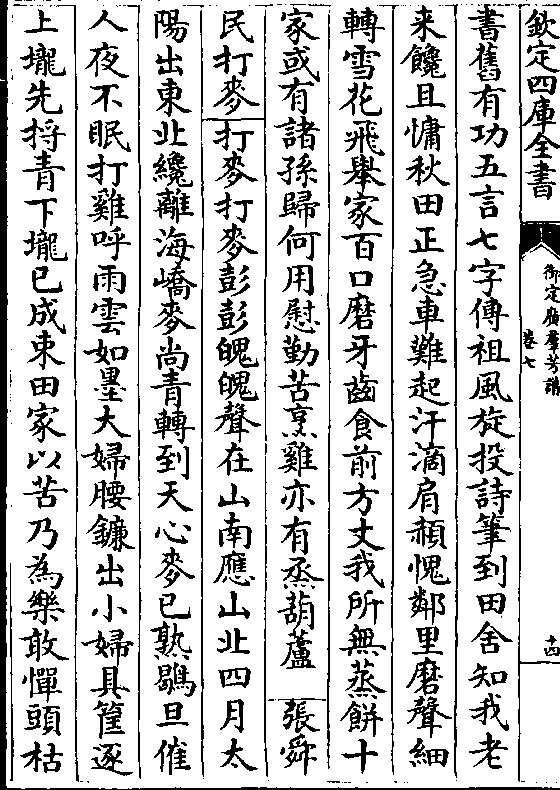 欽定四庫全書
御定廣羣芳譜
卷七
十四
書舊有功五言七字傳祖風旋投詩筆到田舍知我老
来饞且慵秋田正急車難起汗滴肩頳愧鄰里磨聲細
轉雪花飛舉家百口磨牙齒食前方丈我所無蒸餅十
家或有諸孫歸何用慰勤苦烹雞亦有烝葫蘆　張舜
民打麥打麥打麥彭彭魄魄聲在山南應山北四月太
陽出東北纔離海嶠麥尚青轉到天心麥已熟鶡旦催
人夜不眠打雞呼雨雲如墨大婦腰鐮出小婦具筐逐
上壠先捋青下壠已成束田家以苦乃為樂敢憚頭枯